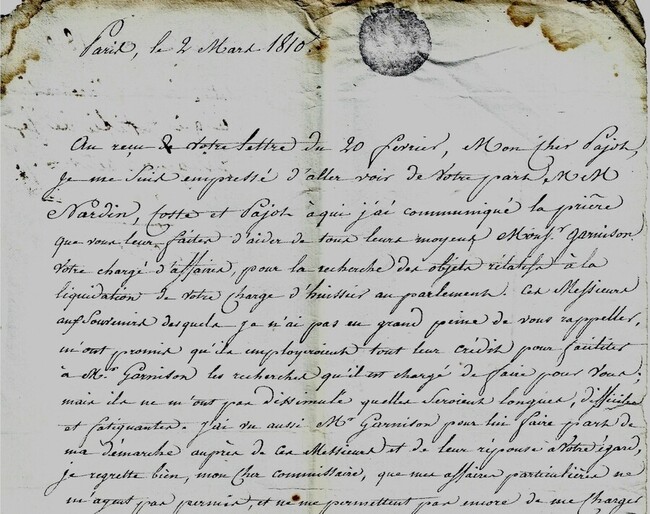 Paris, le 2 Mars 1810.
Au reçu de votre lettre du 20 février, Mon Cher Pajot,
je me suis empressé d'aller voir de votre part, M M
Nardin, Coste et Pajot à qui j'ai communiqué la prière
que vous leur faites d'aider de tous leurs moyens Mons.r Garnison
votre chargé d'affaires, pour la recherche des objets relatifs à la
liquidation de votre charge d'huissier au parlement. Ces Messieurs
aux Souvenirs desquels je n'ai pas eu grand peine de vous rappeller,
m'ont promis qu'ils employeroient tout leur crédit pour faciliter
à M.r Garnison les recherches qu'il est chargé de faire pour vous;
mais ils ne m'ont pas dissimulé qu'elles seroient longues, difficiles
et fatiguantes. J'ai vu aussi M.r Garnison pour lui faire part de
ma démarche auprès de ces Messieurs et de leur réponse à votre égard,
je regrette bien, mon cher commissaire, que mes affaires particulières ne
m'ayent pas permis, et ne me permettent pas encore de me charger